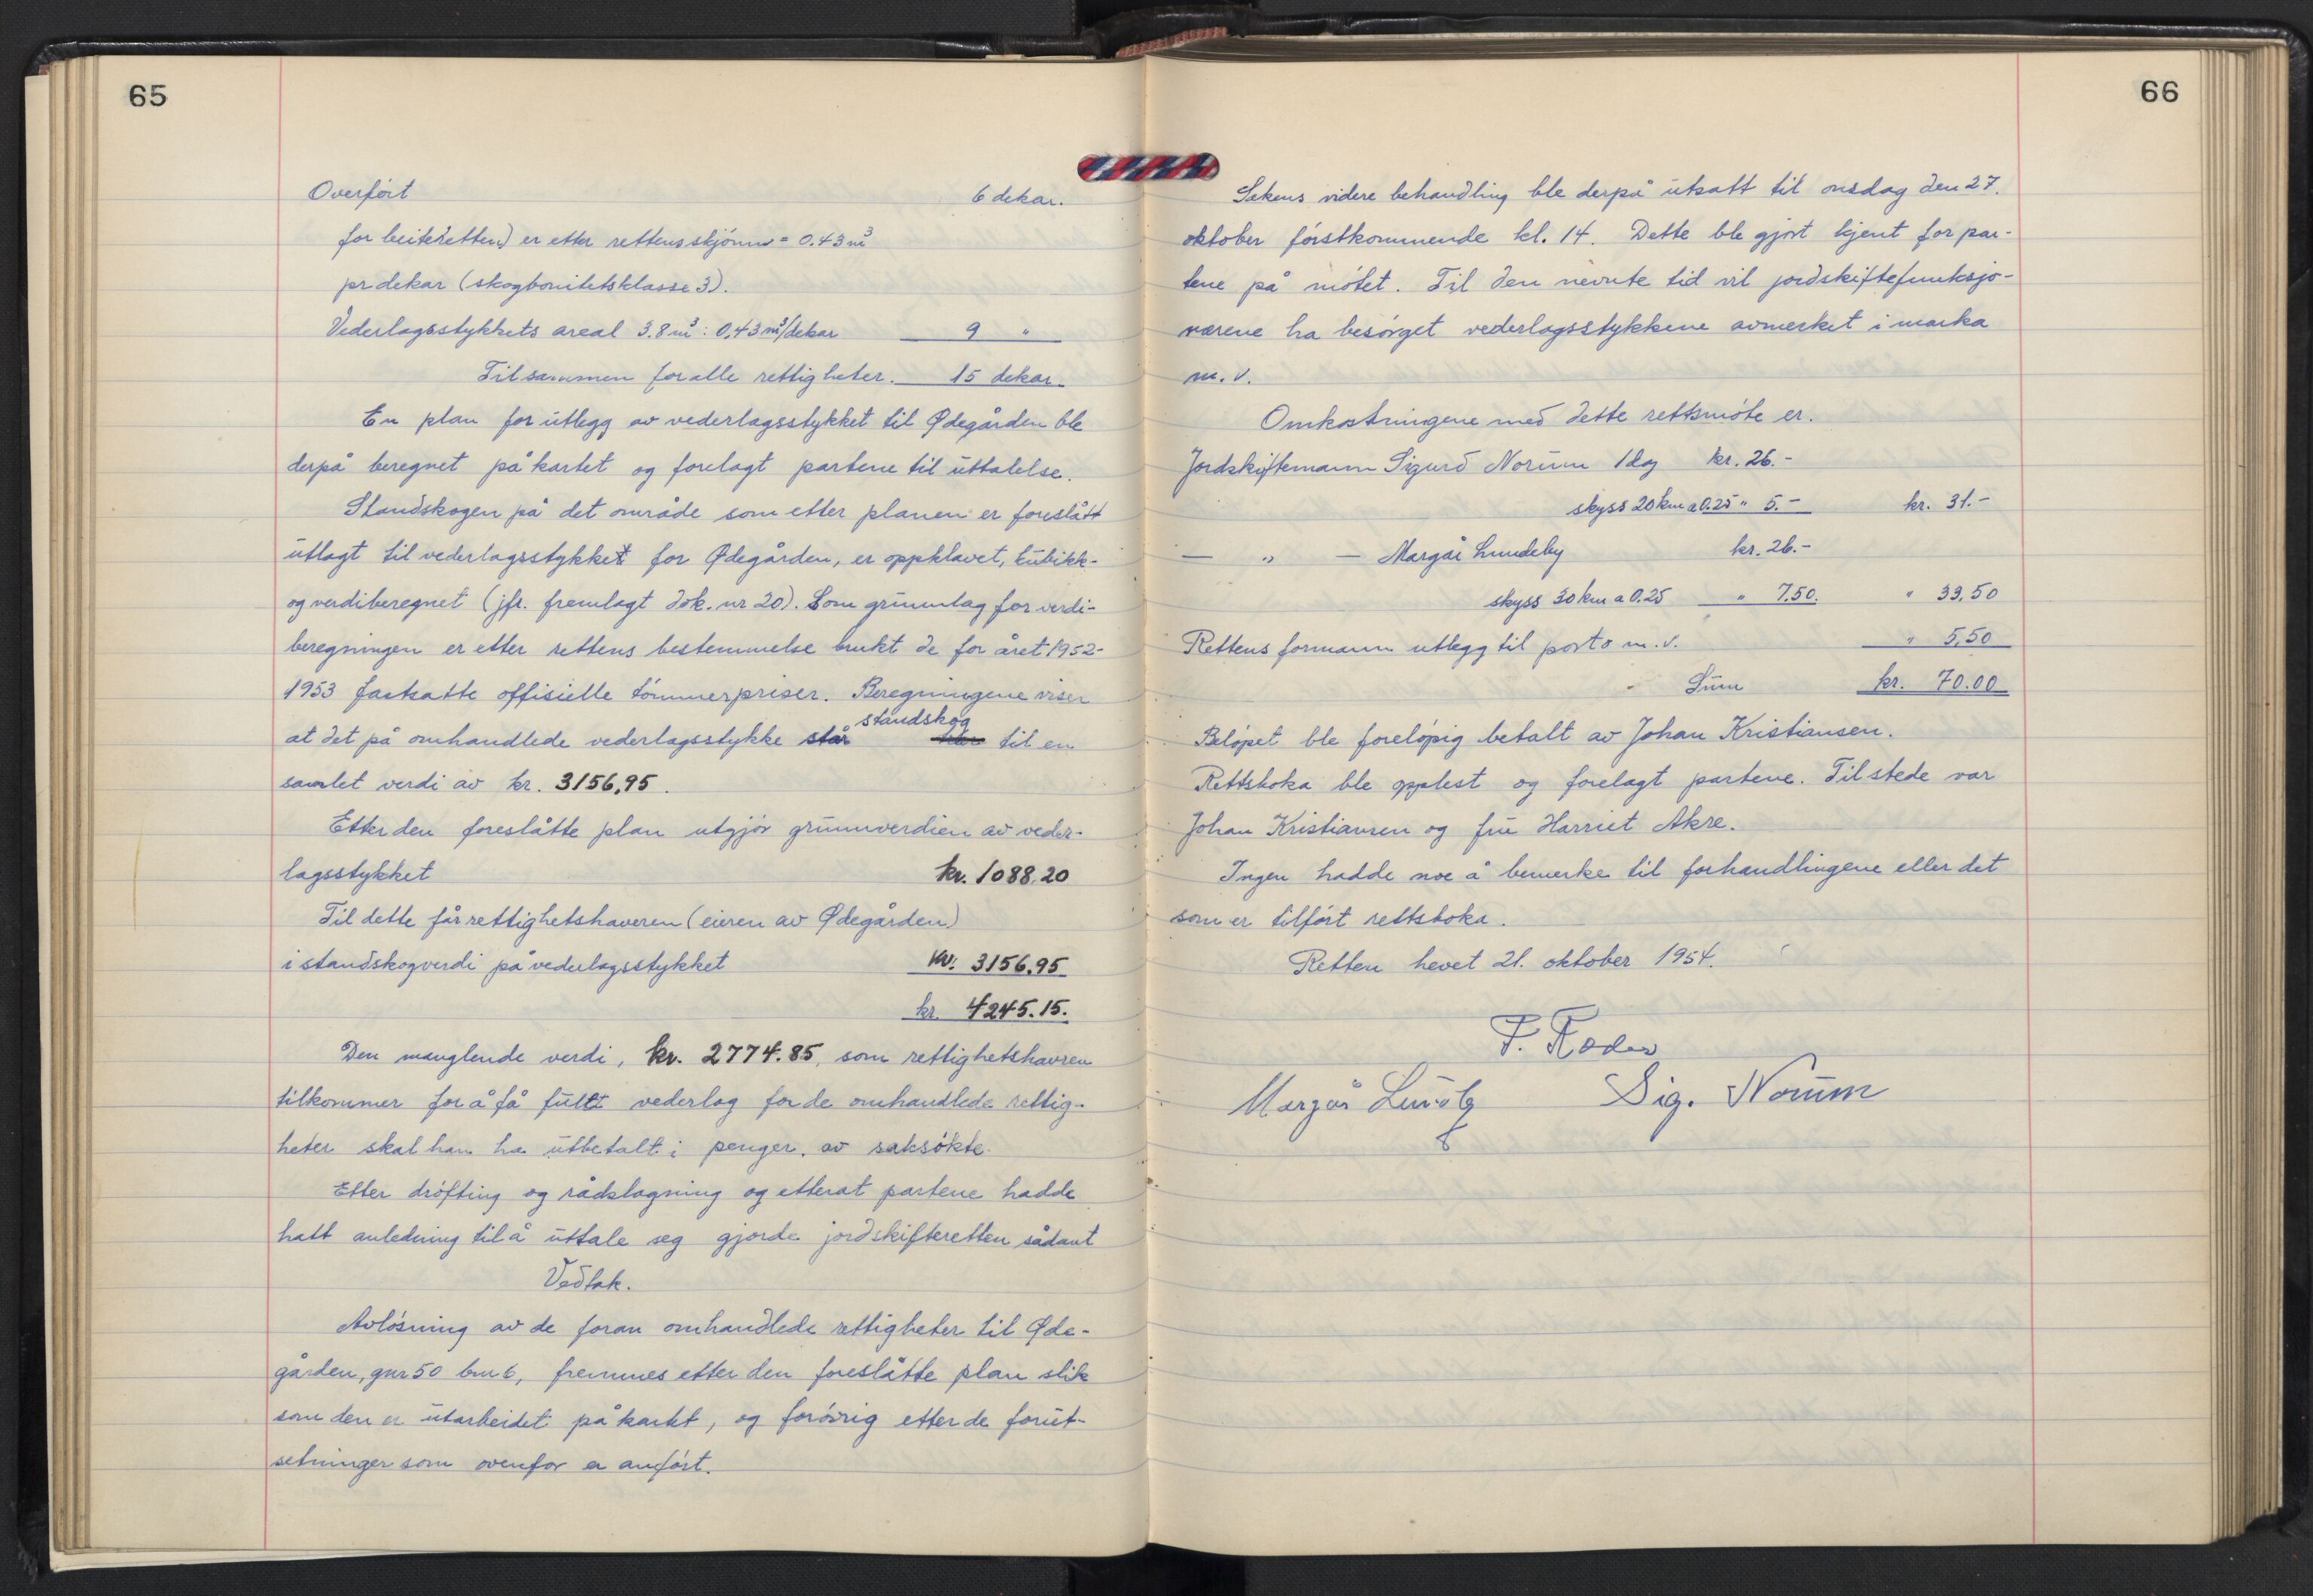 65
Overført 6 dekar.
for beiteretten) er etter rettens skjønn = 0.43 m³
pr dekar (skogbonitetsklasse 3).
Vederlagsstykkets areal 3.8 m³ : 0,43 m³/dekar 9 "
Tilsammen for alle rettigheter. 15 dekar.
En plan for utlegg av vederlagsstykket til Ødegården ble
derpå beregnet på kartet og forelagt partene til uttalelse.
Standskogen på det område som etter planen er foreslått
utlagt til vederlagsstykket for Ødegården, er oppklavet, kubikk-
og verdiberegnet (jfr. fremlagt dok. nr 20). Som grunnlag for verdi-
beregningen er etter rettens bestemmelse brukt de for året 1952-
1953 fastsatte offisielle tømmerpriser. Beregningene viser
at det på omhandlede vederlagsstykke står standskog til en
samlet verdi av kr. 3156,95.
Etter den foreslåtte plan utgjør grunnverdien av veder-
lagsstykket kr. 1088,20
Til dette får rettighetshaveren (eieren av Ødegården)
i standskogverdi på vederlagsstykket kr. 3156,95
kr. 4245.15.
Den manglende verdi, kr. 2774.85, som rettighetshavren
tilkommer for å få fullt vederlag for de omhandlede rettig-
heter skal han ha utbetalt i penger, av saksøkte.
Etter drøfting og rådslagning og etterat partene hadde
hatt anledning til å uttale seg gjorde jordskifteretten sådant
Vedtak.
Avløsning av de foran omhandlede rettigheter til Øde-
gården, gnr 50 bnr 6, fremmes etter den foreslåtte plan slik
som den er utarbeidet på kartet, og forøvrig etter de forut-
setninger som ovenfor er anført.
66
Sakens videre behandling ble derpå utsatt til onsdag den 27.
oktober førstkommende kl. 14. Dette ble gjort kjent for par-
tene på møtet. Til den nevnte tid vil jordskiftefunksjo-
nærene ha besørget vederlagsstykkene avmerket i marka
m.v.
Omkostningene med dette rettsmøte er.
Jordskiftemann Sigurd Norum 1 dag kr. 26.-
skyss 20 km a 0.25 " 5.- kr. 31.-
— " — Margår Lundeby kr. 26.-
skyss 30 km a 0.25 " 7.50. " 33,50
Rettens formann utlegg til porto m.v. " 5,50
Sum kr. 70.00
Beløpet ble foreløpig betalt av Johan Kristiansen.
Rettsboka ble opplest og forelagt partene. Tilstede var
Johan Kristiansen og fru Harriet Akre.
Ingen hadde noe å bemerke til forhandlingene eller det
som er tilført rettsboka.
Retten hevet 21. oktober 1954.
Margår Lundeby Sig. Norum